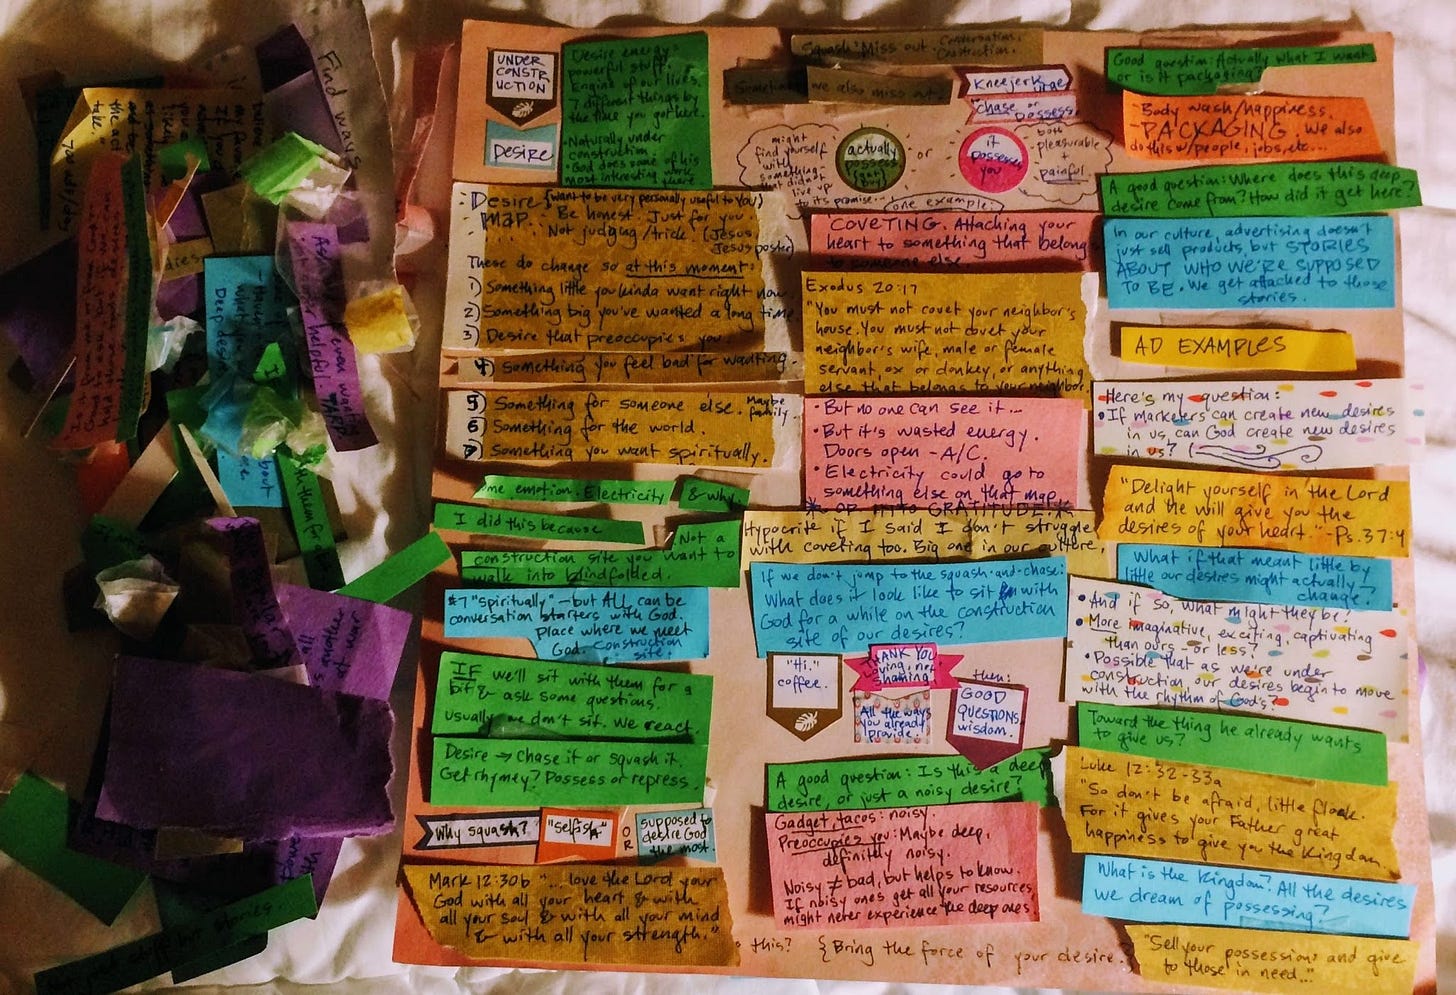 UNDER
CONSTR
UCTION
DESIRE
Desire energy=
powerful stuff.
Engine of our lives.
7 different things by
the time you got here.
•Naturally under
construction
•God does some of his
most interesting work
there.
Desire
map.
(want to be very personally useful to you)
Be honest. Just for you
Not judging/trick. (Jesus
Jesus poster)
These do change so at this moment:
1) Something little you kinda want right now.
2) Something big you've wanted a long time
3) Desire that preoccupies you.
4) Something you feel bad for wanting.
5) Something for someone else. Maybe
family.
6) Something for the world.
7) Something you want spiritually.
me emotion. Electricity
& why.
I did this because
Not a
construction site you want to
walk into blindfolded.
#7 "spiritually" - but ALL can be
conversation starters with God.
place where we meet
God. Construction
site.
IF we'll sit with them for a
bit & ask some questions.
usually we don't sit. We react.
Desire → Chase it or squash it.
Get rhymey? Possess or repress.
Why squash?
"Selfish"
OR
supposed to
desire God
the most.
Mark 12:30b "... love the Lord your
God with all your heart & with
all your soul & with all your mind
& with all your strength."
Squash: Miss out. Conversation,
Construction.
Sometimes we also miss out:
Kneejerk urge
Chase or
possess.
might
find yourself
with
something
that didn't
live up
to its promise...
actually
possess
(get)
(buy)
or
it
possesses
you
both
pleasurable
+
painful
one example:
COVETING. Attaching your
heart to something that belongs
to someone else.
Exodus 20:17
"You must not covet your neighbor's
house. You must not covet your
neighbor's wife, male or female
servant, ox or donkey, or anything
else that belongs to your neighbor.
•But no one can see it...
•But it's wasted energy.
Doors open - A/C.
•Electricity could go to
something else on that map
* OR INTO GRATITUDE.*
Hypocrite if I said I don't struggle
with coveting too. Big one in our culture,
If we don't jump to the squash-and-chase:
What does it look like to sit with
God for a while on the construction
site of our desires?
"Hi."
coffee.
THANK YOU
Loving, not
shaming
All the ways
you already
provide.
then:
GOOD
QUESTIONS
wisdom.
A good question: Is this a deep
desire, or just a noisy desire?
Gadget, tacos: noisy.
Preoccupies you: Maybe deep,
definitely noisy.
Noisy ≠ bad, but helps to know.
If noisy ones get all your resources,
might never experience the deep ones.
this? {Bring the force of your desire.}
Good question: Actually what I want
or is it packaging?
-Body wash/happiness.
-PACKAGING. We also
do this w/people, jobs, etc...
A good question: Where does this deep
desire come from? How did it get here?
In our culture, advertising doesn't
just sell products, but STORIES
ABOUT WHO WE'RE SUPPOSED
TO BE. We get attached to those
stories.
AD EXAMPLES
Here's my question:
•If marketers can create new desires
in us, can God create new desires
in us?
"Delight yourself in the Lord
and He will give you the
desires of your heart." -Ps. 37:4
What if that meant little by
little our desires might actually
change?
•And if so, what might they be?
•More imaginative, exciting, captivating
than ours - or less?
•Possible that as we're under
construction, our desires begin to move
with the rhythm of God's?
Toward the thing he already wants
to give us?
Luke 12:32-33a
"So don't be afraid, little flock.
For it gives your Father great
happiness to give you the Kingdom.
What is the Kingdom? All the desires
we dream of possessing?
"Sell your possessions and give
to those in need..."
Find ways